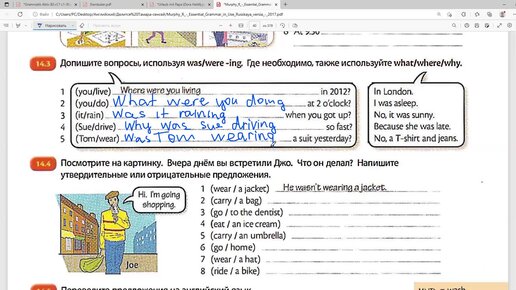 40
14.3 Допишите вопросы, используя was/were -ing. Где необходимо, также используйте what/where/why.
1 (you/live) Where were you living in 2012? In London.
2 (you/do) What were you doing at 2 o'clock? I was asleep.
3 (it/rain) was it raining when you got up? No, it was sunny.
4 (Sue/drive) Why was Sue driving so fast? Because she was late.
5 (Tom/wear) was Tom wearing a suit yesterday? No, a T-shirt and jeans.
14.4 Посмотрите на картинку. Вчера днём вы встретили Джо. Что он делал? Напишите
утвердительные или отрицательные предложения.
Hi. I'm going
shopping.
Joe
1 (wear / a jacket) He wasn't wearing a jacket.
2 (carry / a bag)
3 (go / to the dentist)
4 (eat / an ice cream)
5 (carry / an umbrella)
6 (go / home)
7 (wear / a hat)
8 (ride / a bike)